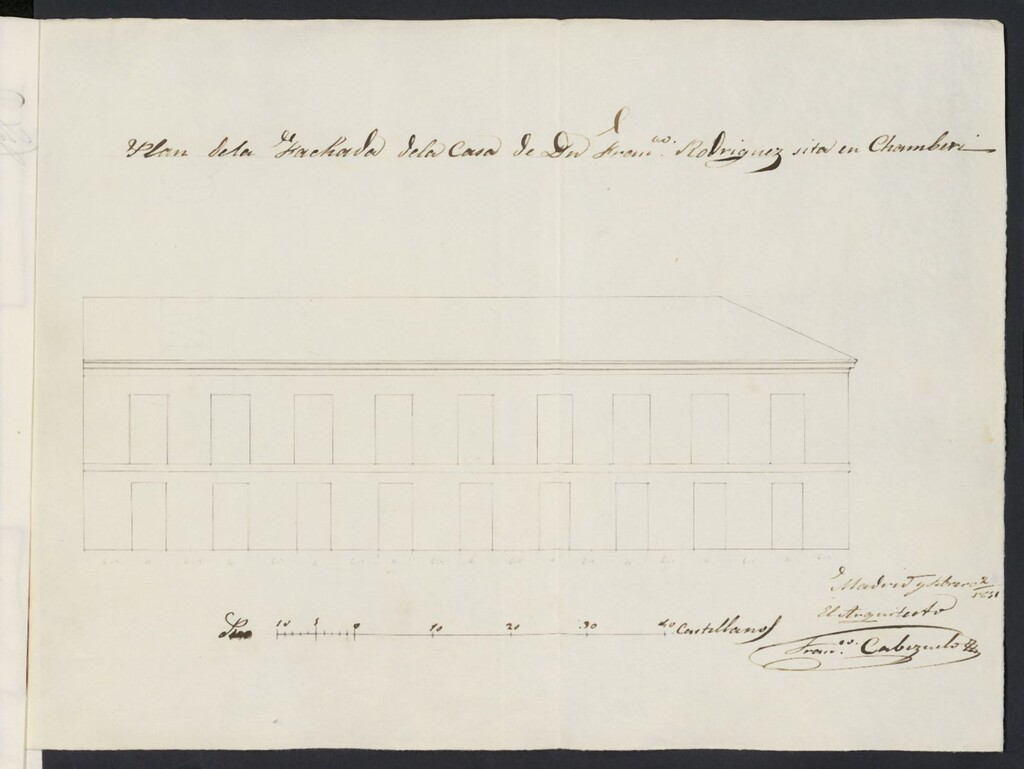 Plan dela Fachada dela Casa de Dn Franco. Rodriguez sita en Chamberi
Pies 10 5 0 10 20 30 40 Castellanos
Madrid y febrero 2/1831
El Arquitecto
Franco. Cabezuelo